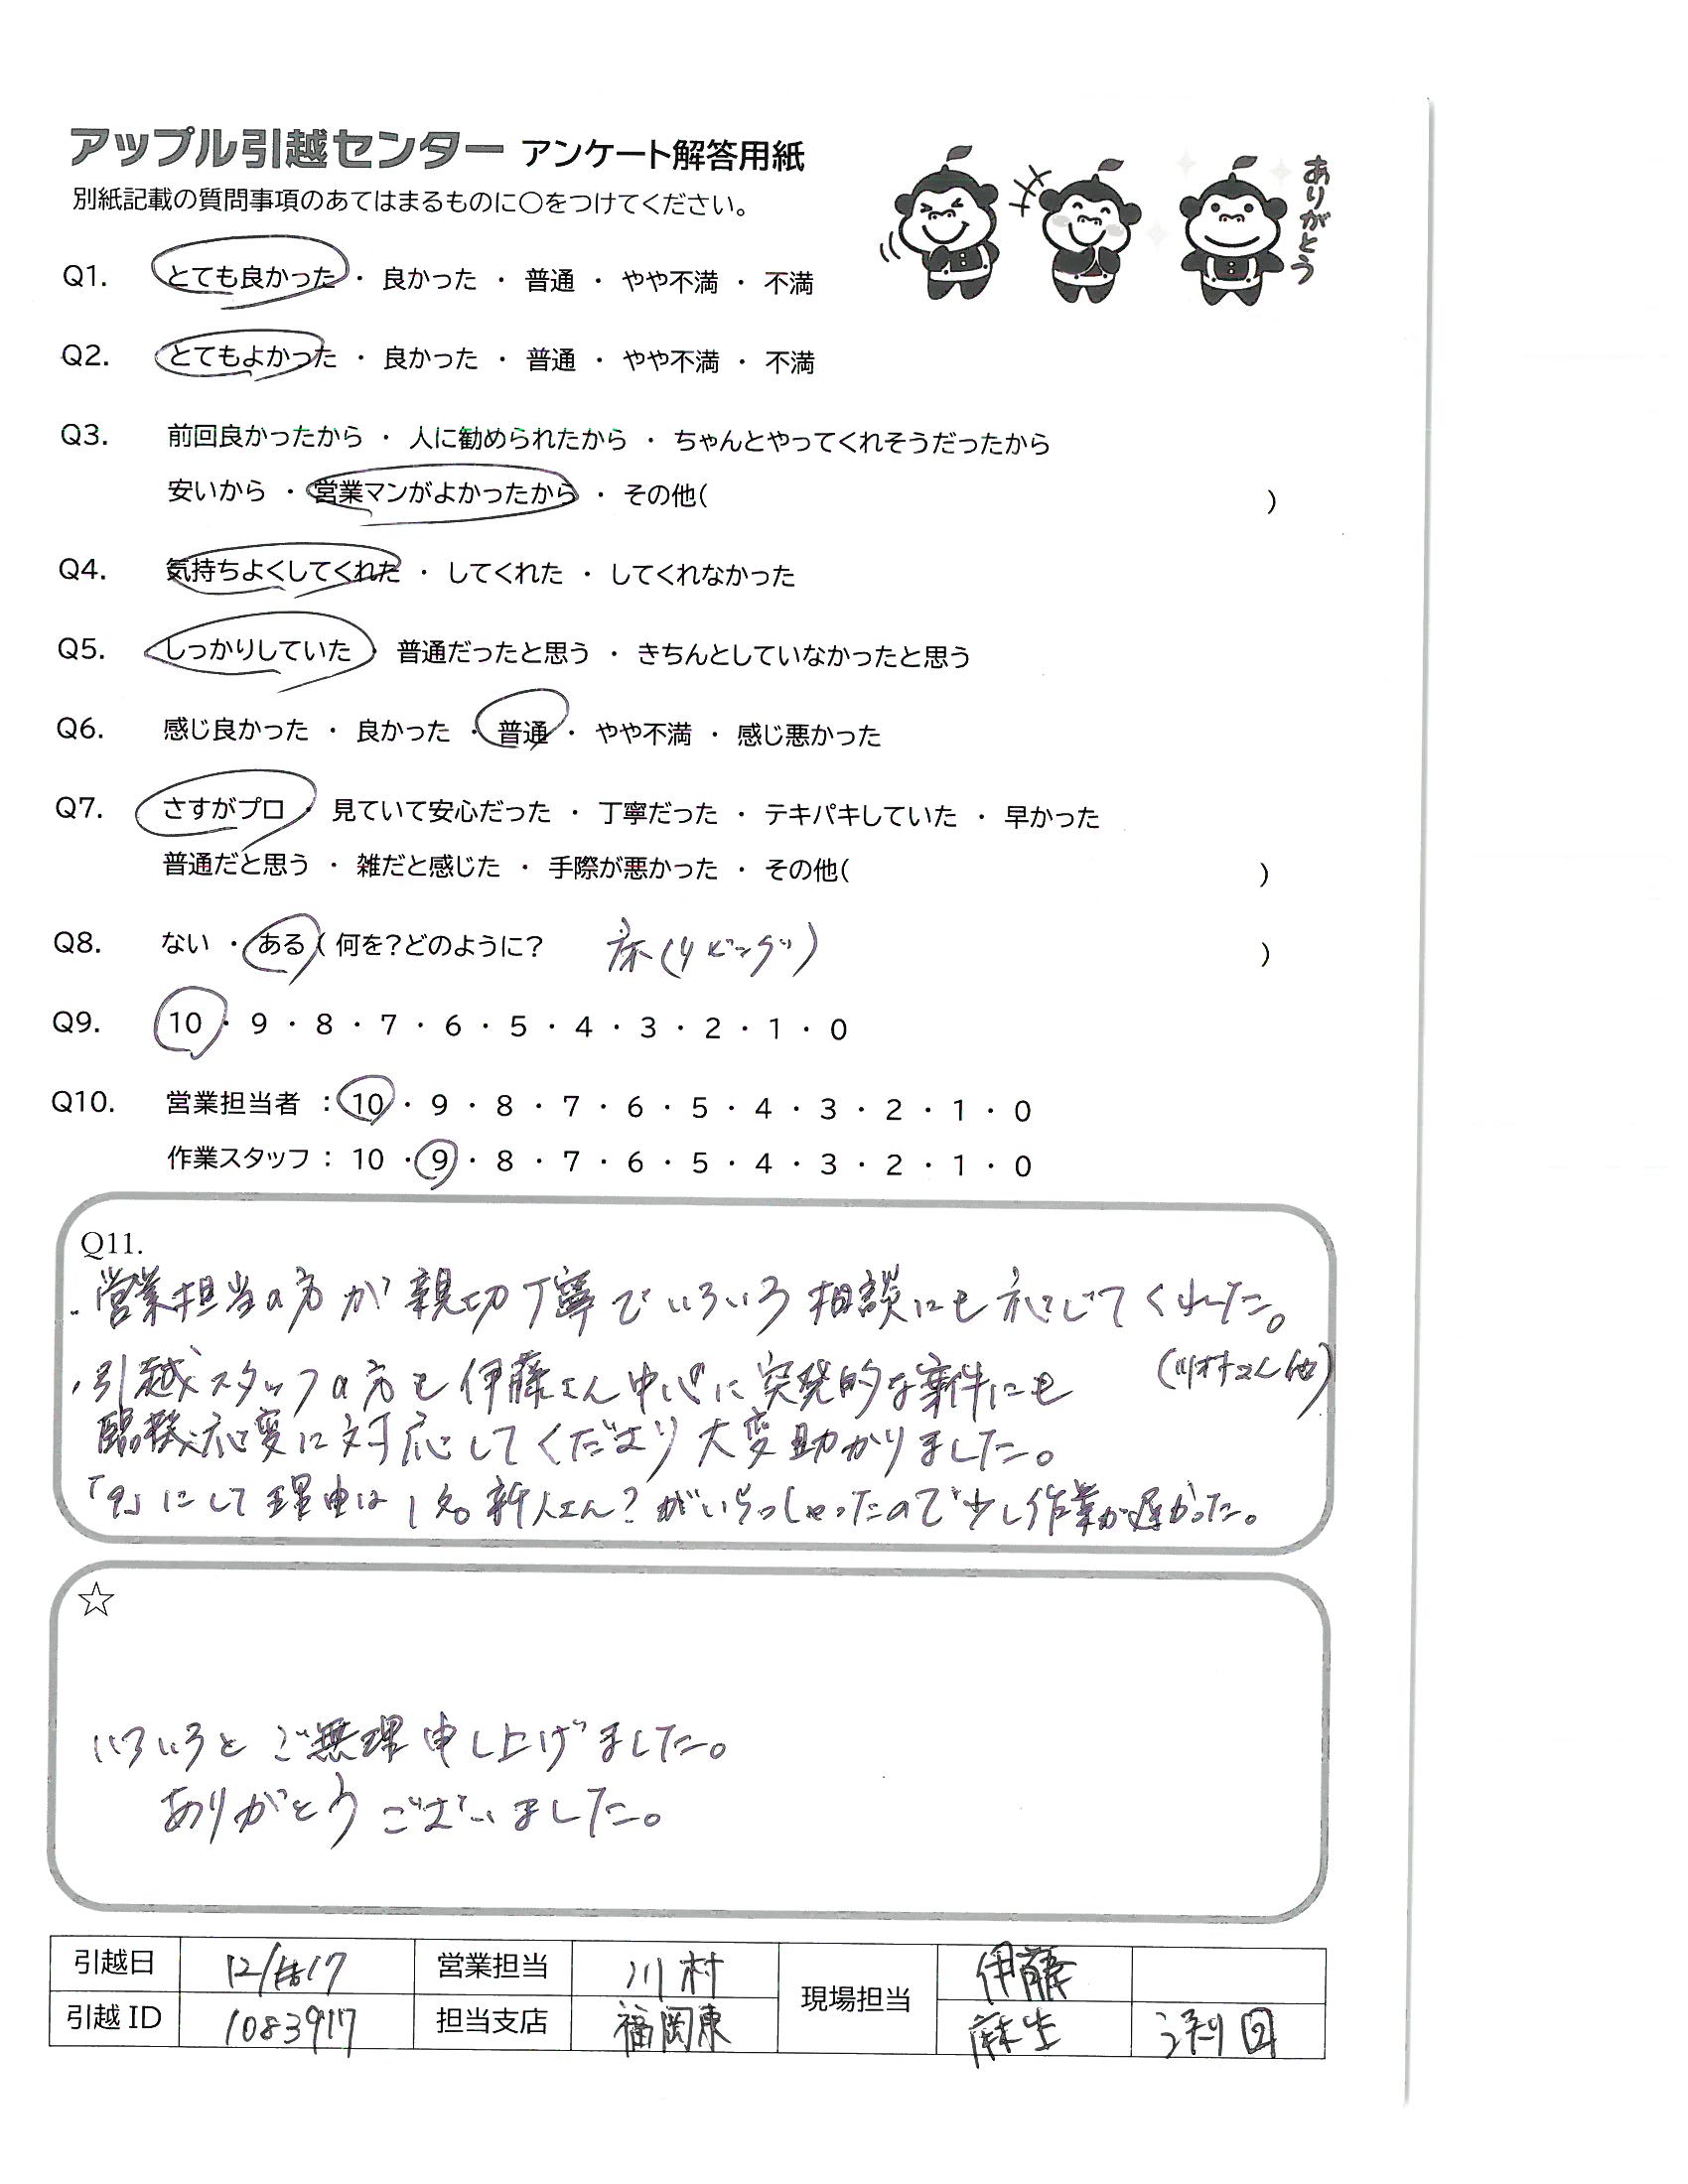 アップル引越センター アンケート解答用紙
別紙記載の質問事項のあてはまるものに○をつけてください。
ありがとう
Q1. とても良かった ・ 良かった ・ 普通 ・ やや不満 ・ 不満
Q2. とてもよかった ・ 良かった ・ 普通 ・ やや不満 ・ 不満
Q3. 前回良かったから ・ 人に勧められたから ・ ちゃんとやってくれそうだったから
安いから ・ 営業マンがよかったから ・ その他( )
Q4. 気持ちよくしてくれた ・ してくれた ・ してくれなかった
Q5. しっかりしていた ・ 普通だったと思う ・ きちんとしていなかったと思う
Q6. 感じ良かった ・ 良かった ・ 普通 ・ やや不満 ・ 感じ悪かった
Q7. さすがプロ ・ 見ていて安心だった ・ 丁寧だった ・ テキパキしていた ・ 早かった
普通だと思う ・ 雑だと感じた ・ 手際が悪かった ・ その他( )
Q8. ない ・ ある ( 何を?どのように? 床(リビング) )
Q9. 10 ・ 9 ・ 8 ・ 7 ・ 6 ・ 5 ・ 4 ・ 3 ・ 2 ・ 1 ・ 0
Q10. 営業担当者 : 10 ・ 9 ・ 8 ・ 7 ・ 6 ・ 5 ・ 4 ・ 3 ・ 2 ・ 1 ・ 0
作業スタッフ : 10 ・ 9 ・ 8 ・ 7 ・ 6 ・ 5 ・ 4 ・ 3 ・ 2 ・ 1 ・ 0
Q11.
・営業担当の方が親切丁寧でいろいろ相談にも応じてくれた。
・引越スタッフの方も伊藤さん中心に突発的な案件にも
臨機応変に対応してくださり大変助かりました。
「9」にして理由は1名新人さん?がいらっしゃったので少し作業が遅かった。
☆
いろいろとご無理申し上げました。
ありがとうございました。
引越日 12/17 営業担当 川村 現場担当 伊藤
引越ID 1083917 担当支店 福岡東 麻生